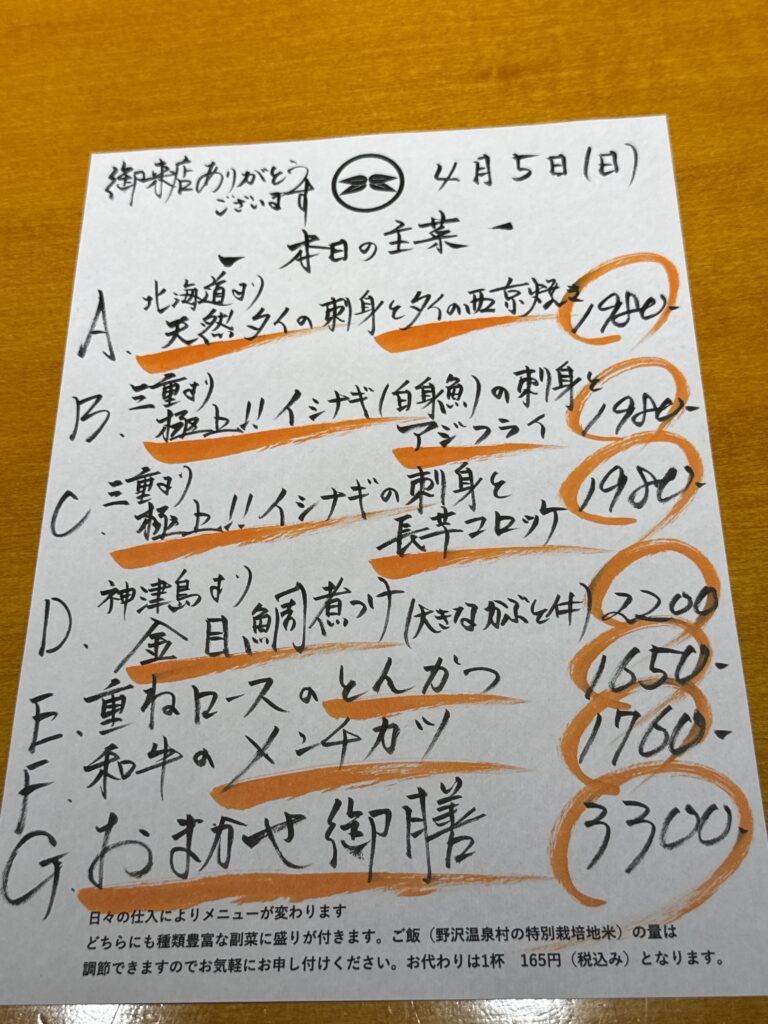 御来店ありがとう
ございます
4月5日(日)
- 本日の主菜 -
A. 北海道より
天然タイの刺身とタイの西京焼き 1980-
B. 三重より
極上!!イシナギ(白身魚)の刺身と
アジフライ 1980-
C. 三重より
極上!!イシナギの刺身と
長芋コロッケ 1980-
D. 神津島より
金目鯛煮つけ(大きなかぶと付) 2200
E. 重ねロースのとんかつ 1650-
F. 和牛のメンチカツ 1760-
G. おまかせ御膳 3300-
日々の仕入によりメニューが変わります
どちらにも種類豊富な副菜に盛りが付きます。ご飯（野沢温泉村の特別栽培地米）の量は
調節できますのでお気軽にお申し付けください。お代わりは1杯　165円（税込み）となります。